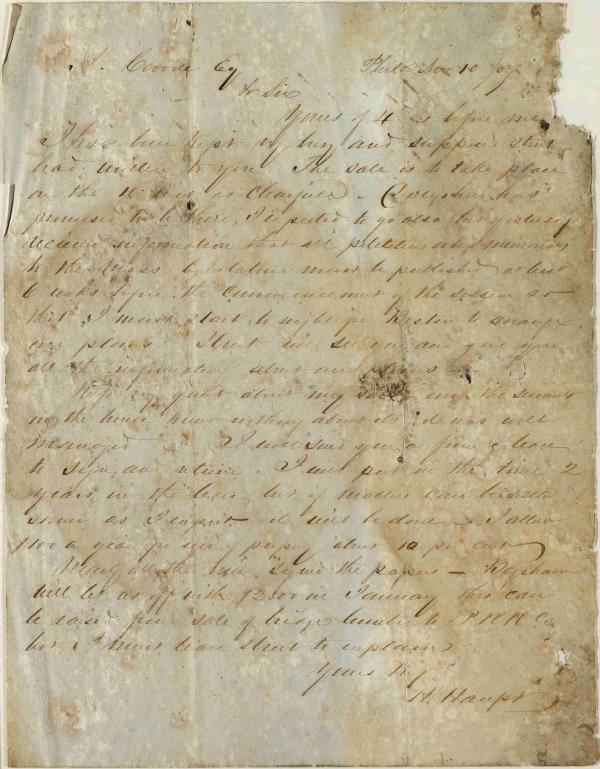 A. Coorde Esq Phila Nov 10 /57
Dr Sir
Yours of 4 is before me
I have been kept very busy and suppose Stout
had written to you. The sale is to take place
on the 10 as
promised to be there, I expected to go also but yesterday
received information that all petitions and memorials
to the Mass Legislature must be published at least
6 weeks before the commencement of the session so
that I must start to night for Boston to arrange
our plans. Stout will see you and give you
all the information about our plans
Keep very quiet about my and the servants
in the house know nothing about it it was well
managed. I will send you a form of lease
to sign and return. I have put in the time 2
years in the lease but if matters can be settled
sooner as I expect it will be done. I allow
$100 a year for use of about 10 per cent
Nearly all the have signed the papers —
will let us off with $2000 in January this can
be raised from sale of bridge to P R R Co
but I must leave Stout to explain
Yours truly
H. Haupt